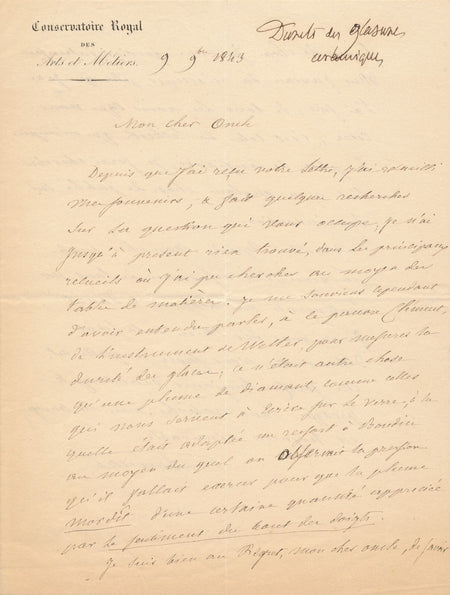 Conservatoire Royal
DES
Arts et Métiers.
9 9bre 1843
Dureté des glaçures
céramiques
Mon cher Oncle
Depuis que j'ai reçu votre lettre, j'ai recueilli
mes souvenirs, & fait quelques recherches
sur la question qui vous occupe, je n'ai
jusqu'à present rien trouvé, dans les principaux
recueils où j'ai pu chercher au moyen des
tables de matières. je me souviens cependant
d'avoir entendu parler, à le pauvre Clément,
de l'instrument de Welter, pour mesurer la
dureté des glaces; ce n'était autre chose
qu'une plume de diamant, comme celles
qui nous servent à écrire sur le verre, à la
quelle était adaptée un ressort à Boudin
au moyen du quel on observait la pression
qu'il fallait exercer pour que la plume
mordît d'une certaine quantité appréciée
par le sentiment du bout des doigts.
Je suis bien au Regret, mon cher oncle, de